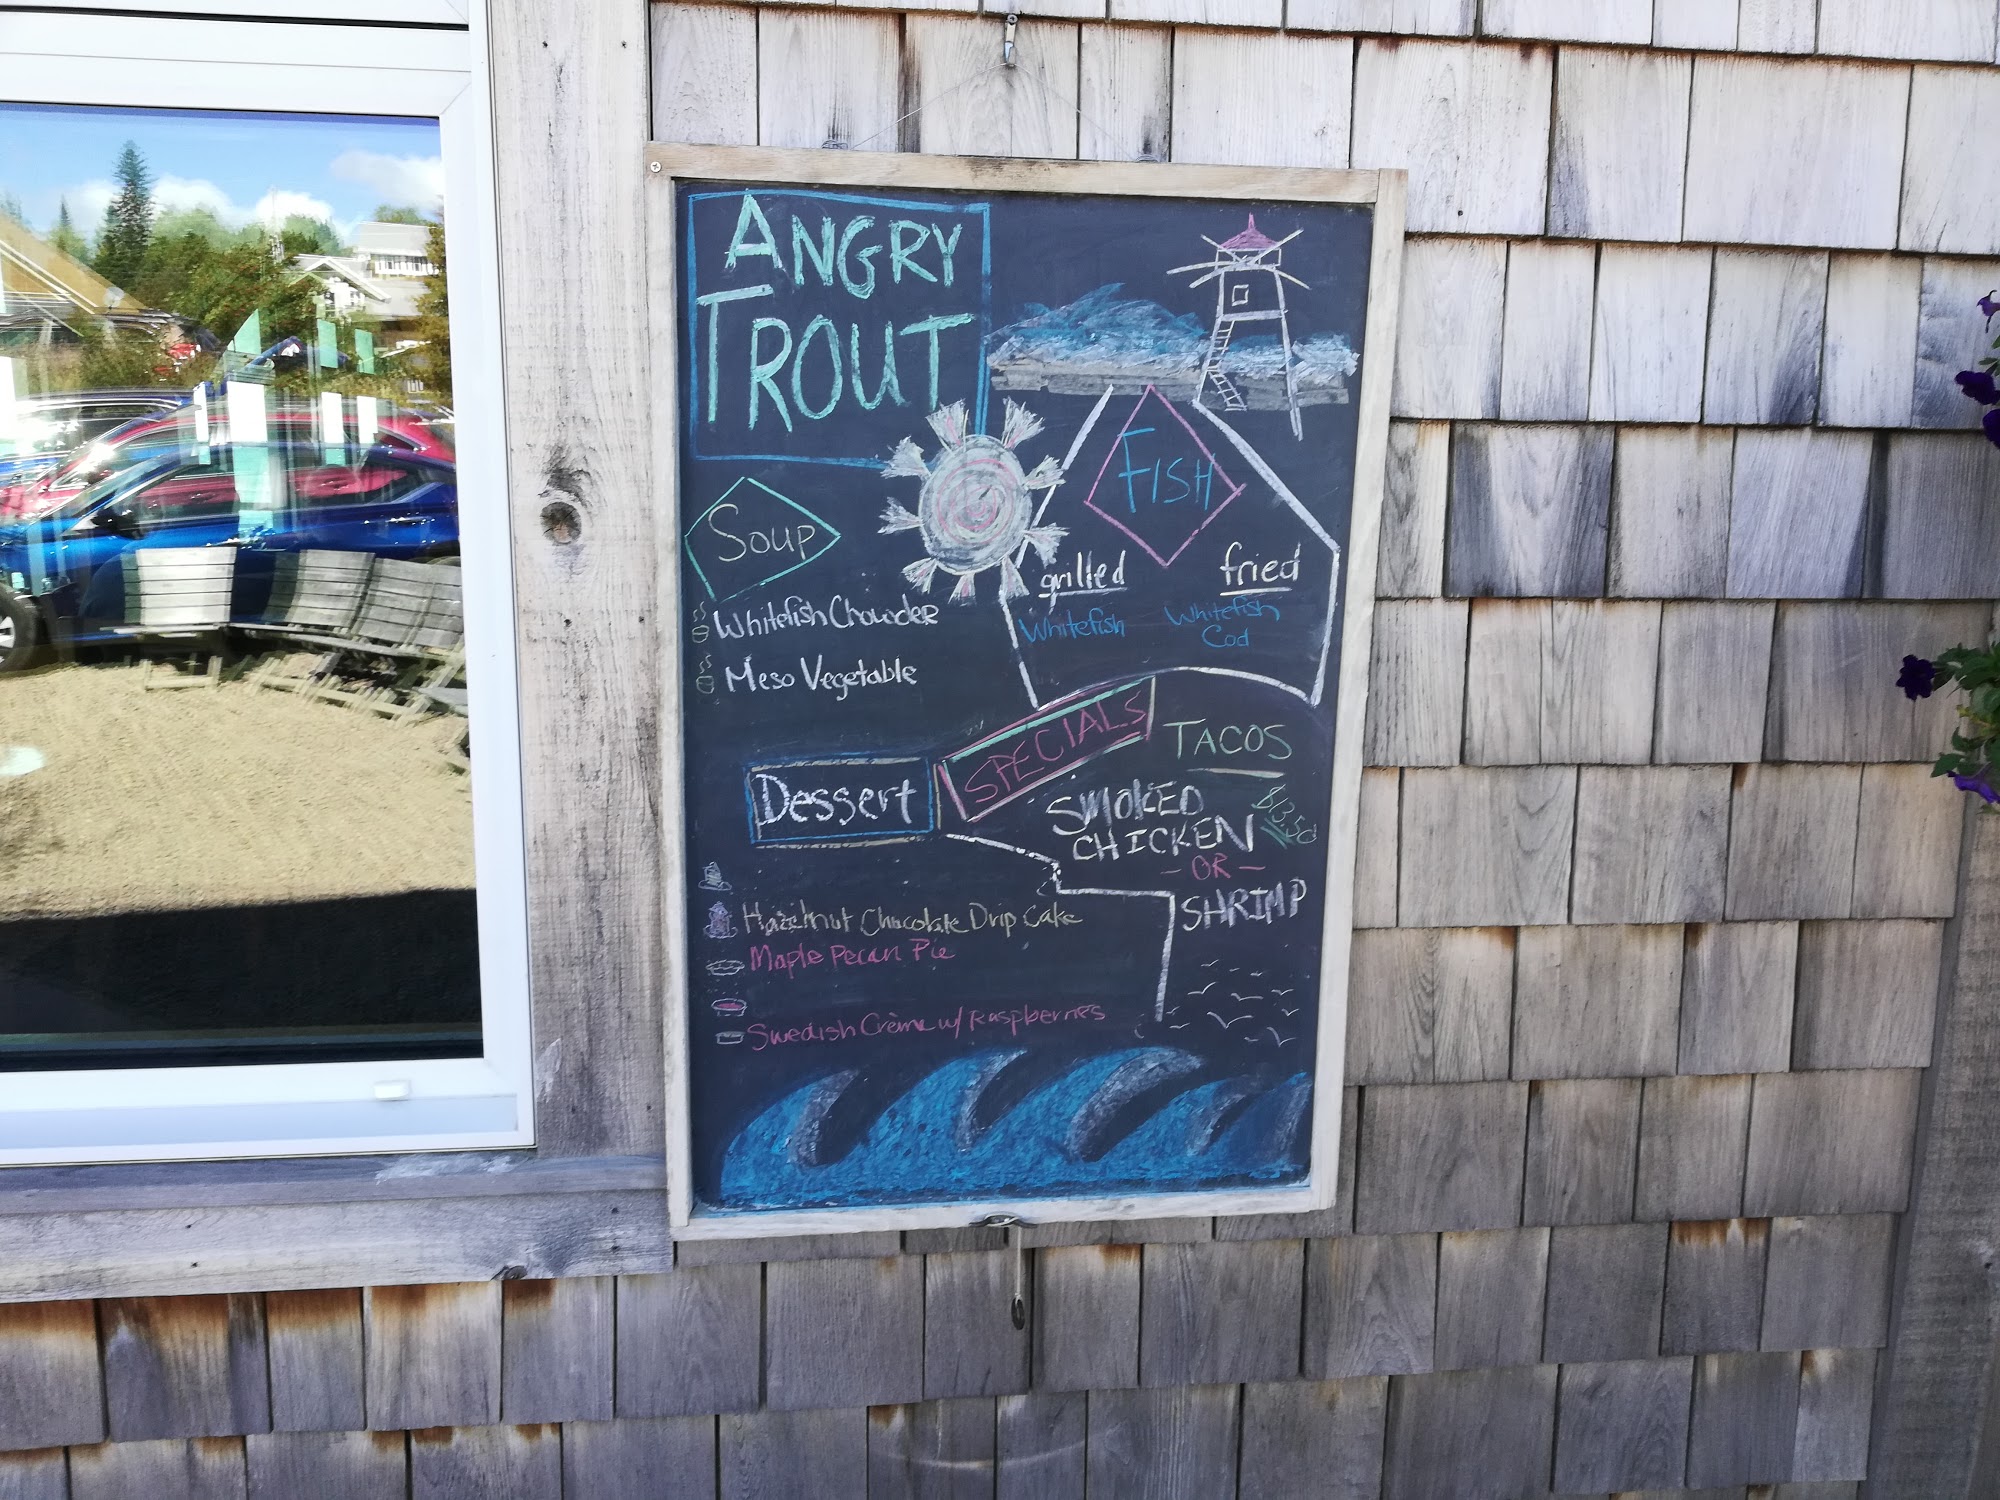 ANGRY
TROUT
Soup
Whitefish Chowder
Meso Vegetable
FISH
grilled
Whitefish
fried
Whitefish
Cod
SPECIALS
TACOS
SMOKED
CHICKEN
- OR -
SHRIMP
Dessert
Hazelnut Chocolate Drip Cake
Maple Pecan Pie
Swedish Crème w/ Raspberries